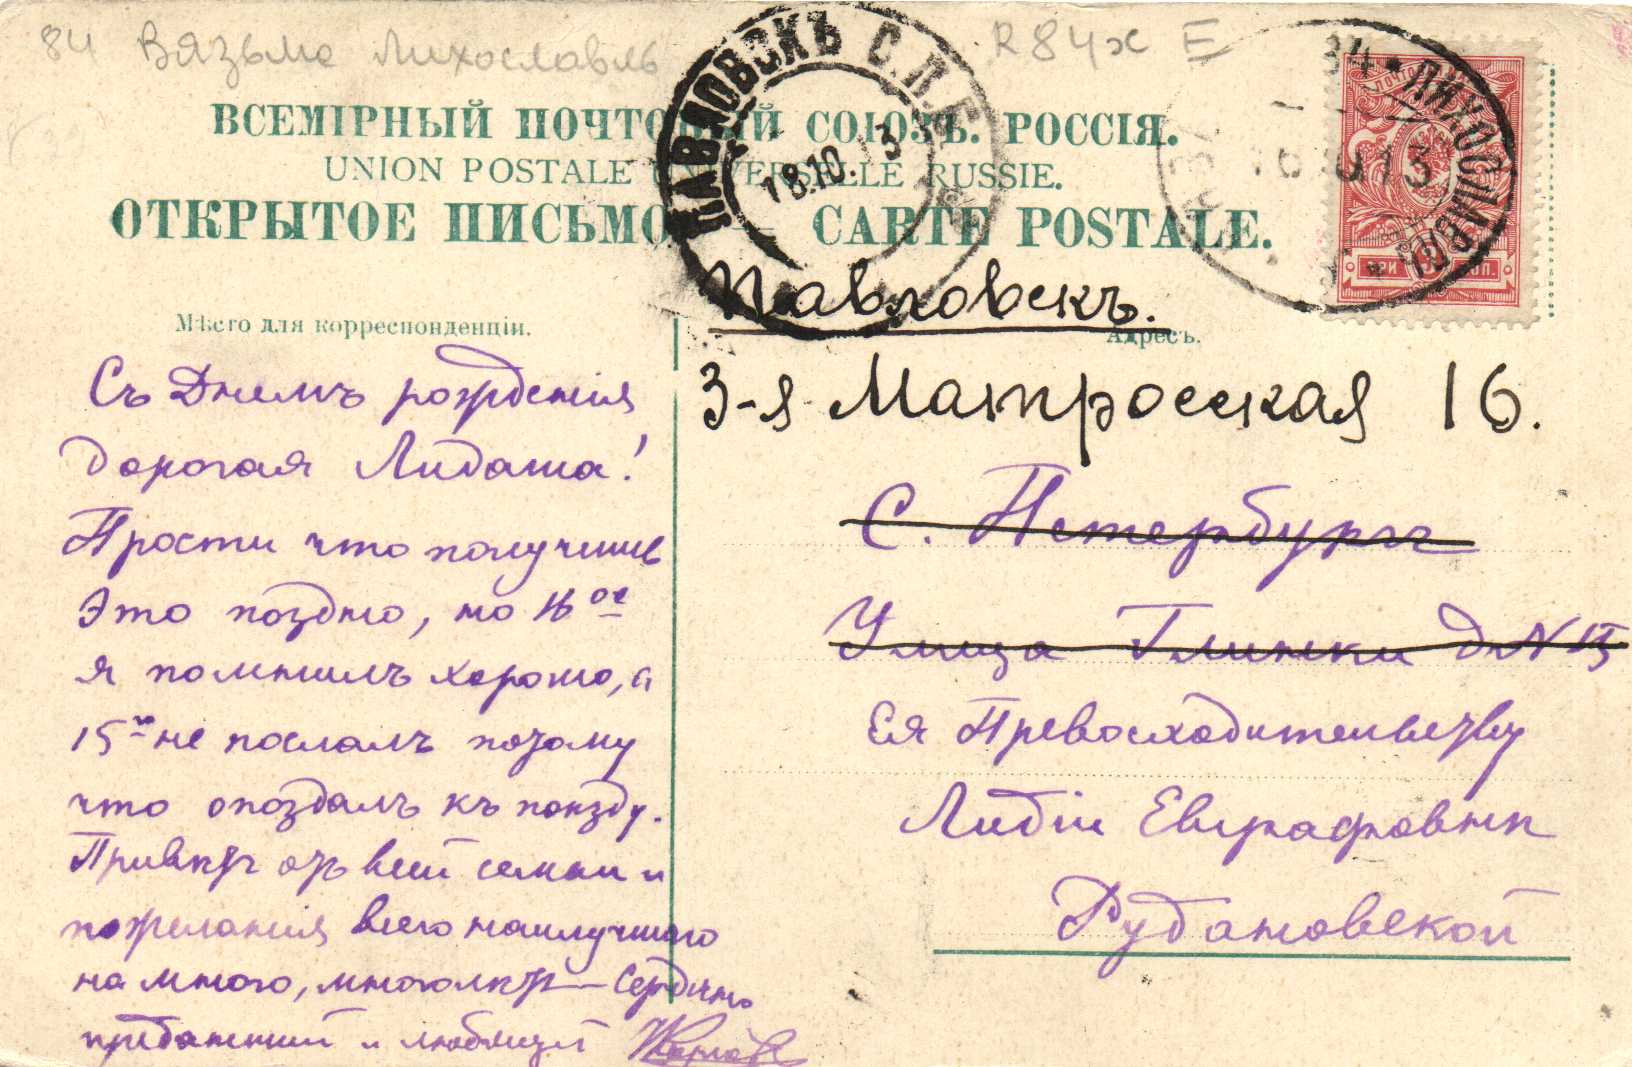 84 Вязьма Лихославль
R84x E
ВСЕМІРНЫЙ ПОЧТОВЫЙ СОЮЗЪ. РОССІЯ.
UNION POSTALE UNIVERSELLE RUSSIE.
ОТКРЫТОЕ ПИСЬМО. — CARTE POSTALE.
ПАВЛОВСКЪ С.П.Б.
18.10.13
84 * ЛИХОСЛАВЛЬ
ТРИ КОП.
Мѣсто для корреспонденціи.
Адресъ.
Съ Днемъ рожденія
дорогая Лидаша!
Прости что получишь
Это поздно, но 16ое
я помнилъ хорошо, а
15го не послалъ потому
что опоздалъ къ поѣзду.
Привѣтъ отъ всей семьи и
пожеланія всего наилучшаго
на много, много лѣтъ — Сердечно
преданный и любящій
Павловскъ.
3-я Матросская 16.
С. Петербургъ
Улица Глинки д N 15
Ея Превосходительству
Лидіи Евграфовнѣ
Рудановской